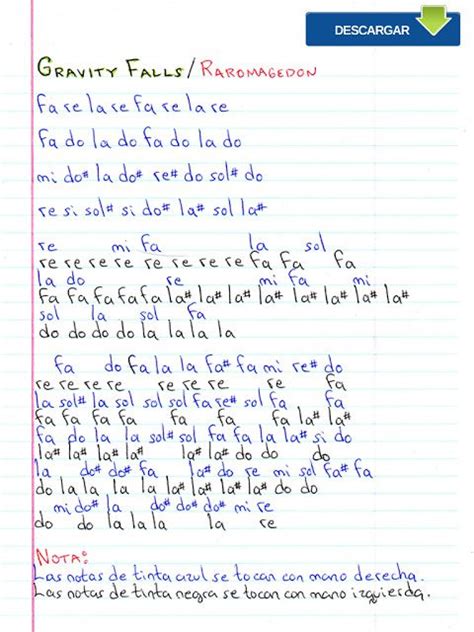 DESCARGAR
GRAVITY FALLS/RAROMAGEDON
fa re la re fa re la re
fa do la do fa do la do
mi do# la do# re# do sol# do
re si sol# si do# la# sol la#
re mi fa la sol
re re re re re re re re fa fa fa
la do re mi fa mi
fa fa fa fa fa fa la# la# la# la# la# la# la#
sol la sol fa
do do do do la la la la
fa do fa la la fa# fa mi re# do
re re re re re re re re fa
la sol# la sol sol sol fa re# sol fa fa
fa fa fa fa fa fa fa fa la# la#
fa do la la sol# sol fa fa la la# si do
la# la# la# la# la# la# do do do
la do# do# fa la# do re mi sol fa# fa
do la la la la la# la# la# la# do do
mi do# la do# do# do# mi re
do do la la la la re
NOTA:
Las notas de tinta azul se tocan con mano derecha.
Las notas de tinta negra se tocan con mano izquierda.